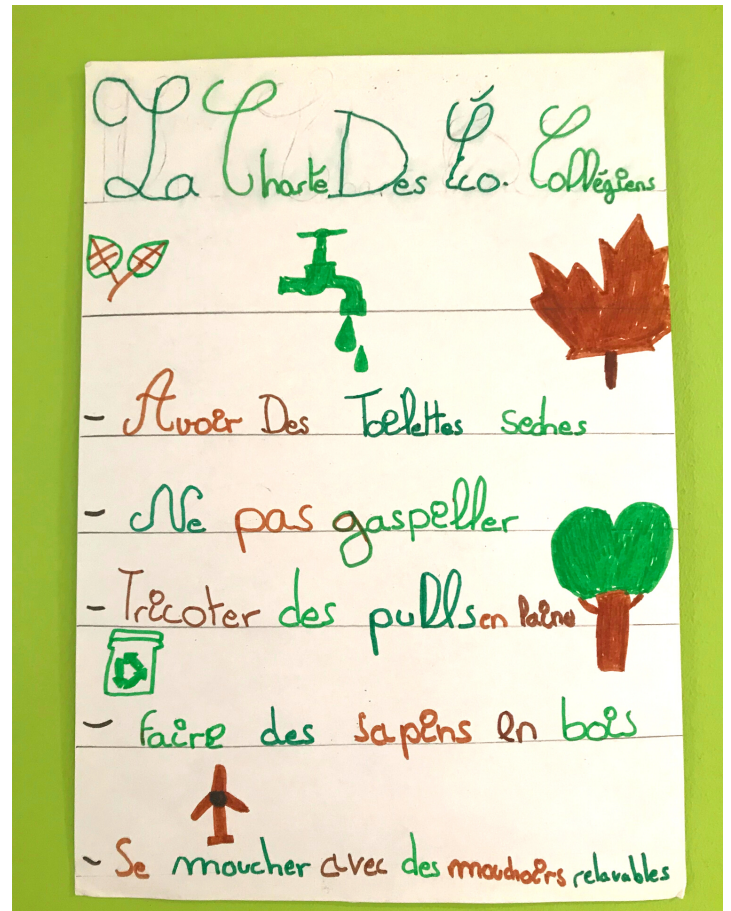 La Charte Des Éco. Collégiens
- Avoir Des Toilettes sèches
- Ne pas gaspiller
- Tricoter des pulls en laine
- faire des sapins en bois
- Se moucher avec des mouchoirs relavables